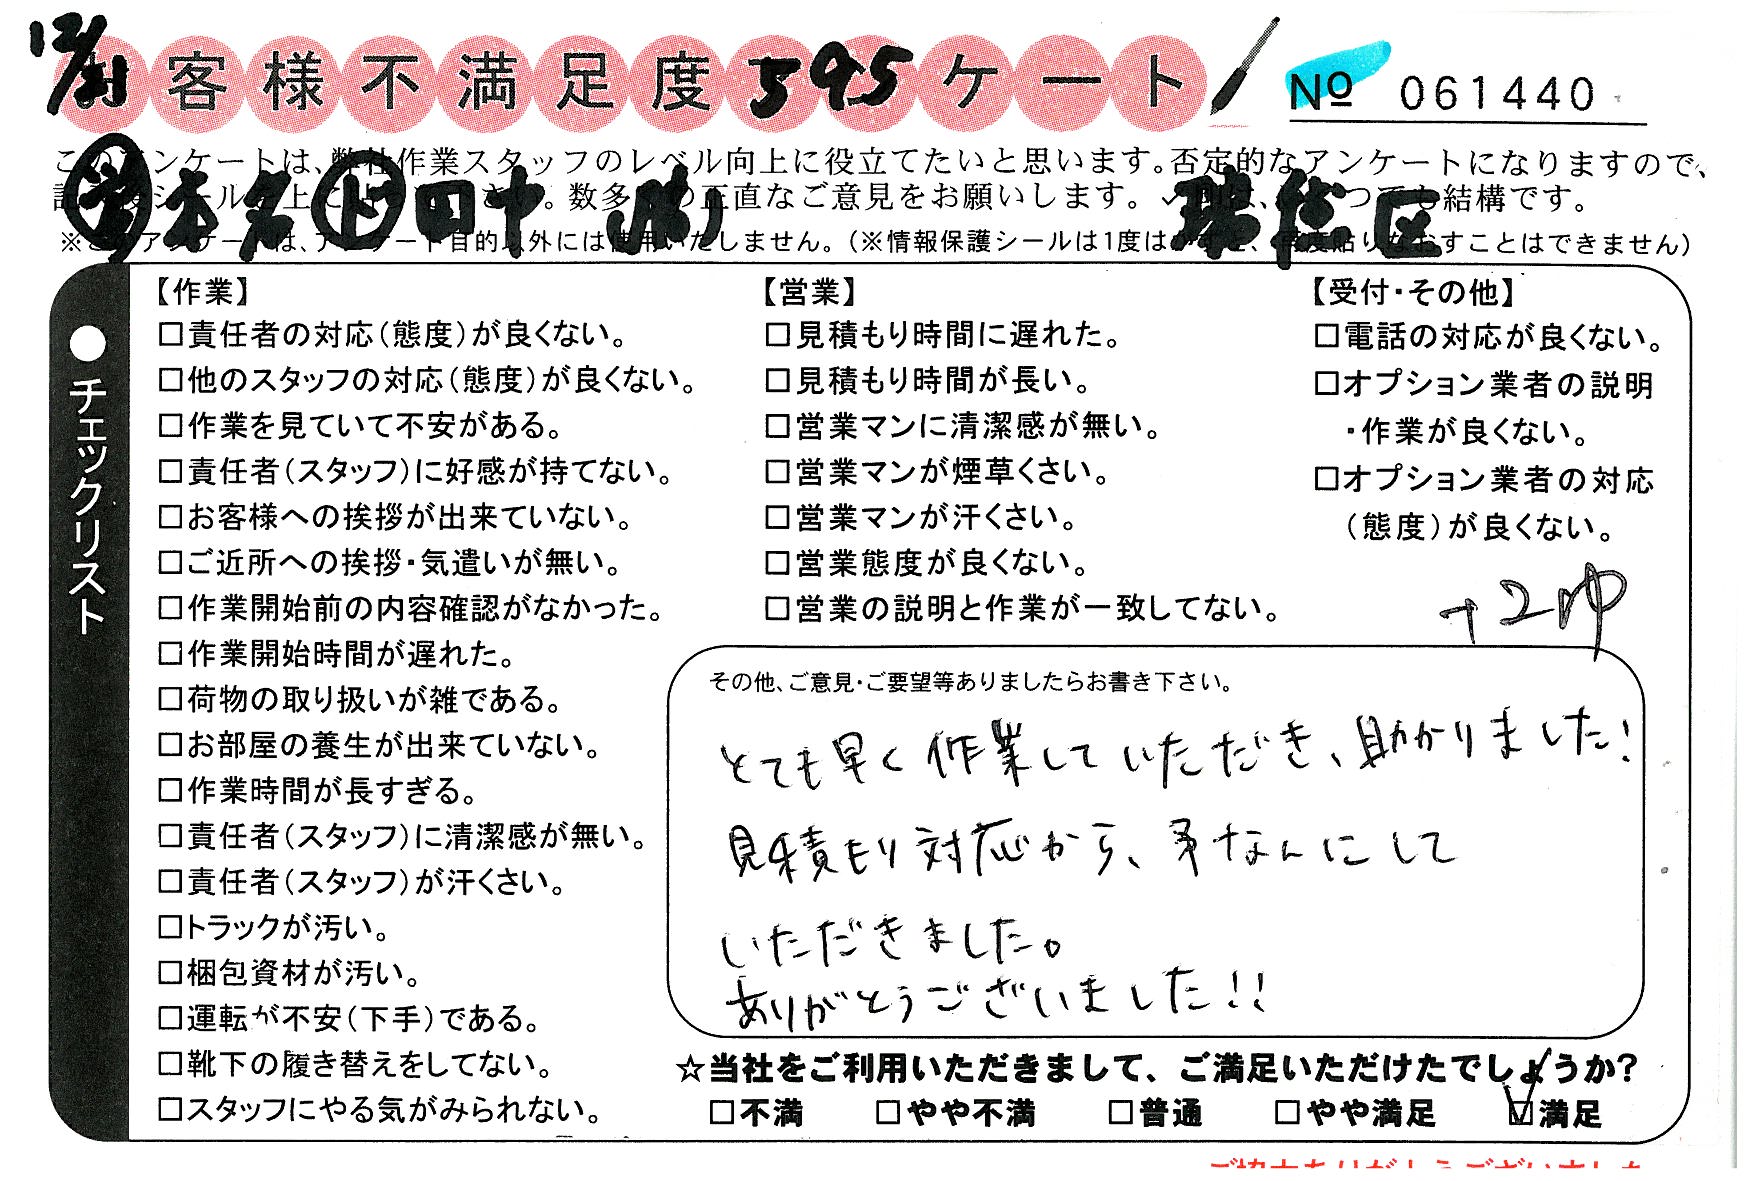 12/31
お客様不満足度 595 ケート
No 061440
このアンケートは、弊社作業スタッフのレベル向上に役立てたいと思います。否定的なアンケートになりますので、
数多くの正直なご意見をお願いします。 結構です。
田中 瑞穂区
※このアンケートは、アンケート目的以外には使用いたしません。(※情報保護シールは1度はがすと、再度貼りなおすことはできません)
●チェックリスト
【作業】
□責任者の対応(態度)が良くない。
□他のスタッフの対応(態度)が良くない。
□作業を見ていて不安がある。
□責任者(スタッフ)に好感が持てない。
□お客様への挨拶が出来ていない。
□ご近所への挨拶・気遣いが無い。
□作業開始前の内容確認がなかった。
□作業開始時間が遅れた。
□荷物の取り扱いが雑である。
□お部屋の養生が出来ていない。
□作業時間が長すぎる。
□責任者(スタッフ)に清潔感が無い。
□責任者(スタッフ)が汗くさい。
□トラックが汚い。
□梱包資材が汚い。
□運転が不安(下手)である。
□靴下の履き替えをしてない。
□スタッフにやる気がみられない。
【営業】
□見積もり時間に遅れた。
□見積もり時間が長い。
□営業マンに清潔感が無い。
□営業マンが煙草くさい。
□営業マンが汗くさい。
□営業態度が良くない。
□営業の説明と作業が一致してない。
【受付・その他】
□電話の対応が良くない。
□オプション業者の説明
・作業が良くない。
□オプション業者の対応
(態度)が良くない。
その他、ご意見・ご要望等ありましたらお書き下さい。
とても早く作業していただき、助かりました!
見積もり対応から、みなさんにして
いただきました。
ありがとうございました!!
☆当社をご利用いただきまして、ご満足いただけたでしょうか?
□不満 □やや不満 □普通 □やや満足 ☑満足
ご協力ありがとうございました